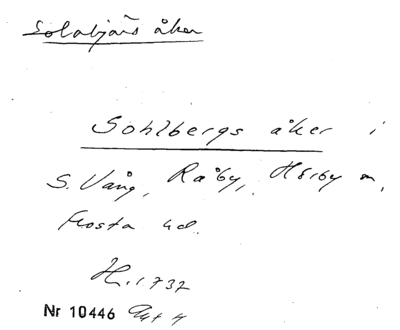 Solabjärs åker
Sohlbergs åker i
S. Vång, Råby, Hörby sn,
Frosta hd.
H. 1737
Nr 10446 Akt 4